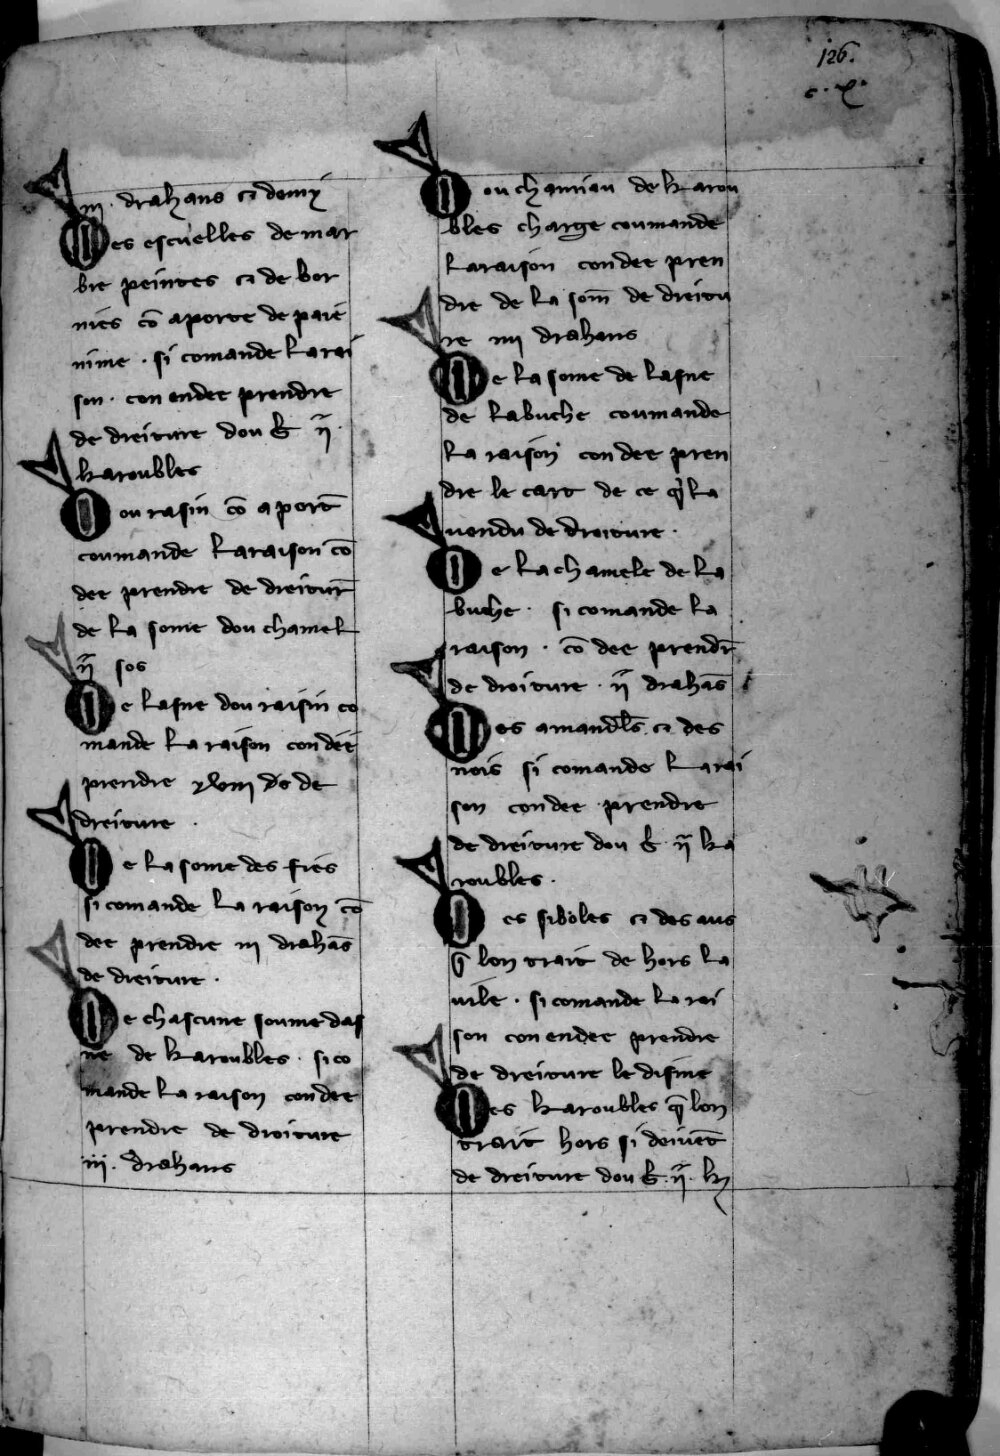 126.
c. x.
iii. drahans et demy
Des escuelles de mar
bre peintes et de bor
nies cõ aporte de paie
nime . si comande la rai
son . con en dee prendre
de dreiture dou b̃ . ii .
karoubles
Dou rasin cõ aport̃
coumande la raison cõ
dee prendre de dreitur̃
de la some dou chamel
ii sos
De lasne dou raisin co
mande la raison con dee
prendre xviii ds de
dreiture .
De la some des fies
si comande la raison cõ
dee prendre iii drahãs
de dreiture .
De chascune soume das
ne de karoubles . si co
mande la raison con dee
prendre de droiture
iii. drahans
Dou chamiau de karou
bles charge coumande
la raison con dee pren
dre de la som̃ de dreitu
re iiii drahans
De la some de lasne
de la buche coumande
la raison con dee pren
dre le cart de ce q̃ la
vendu de droiture .
De la chamele de la
buche . si comande la
raison . cõ dee prendr̃
de droiture . ii drahãs
Des amandl̃s et des
nois si comande la rai
son con dee prendre
de dreiture dou b̃ . ii ka
roubles .
Des siboles et des aus
q̃ lon trait de hors la
vile . si comande la rai
son con en dee prendre
de dreiture le disme
Des karoubles q̃ lon
trait hors si deivẽt
de dreiture dou b̃ . ii . k̃